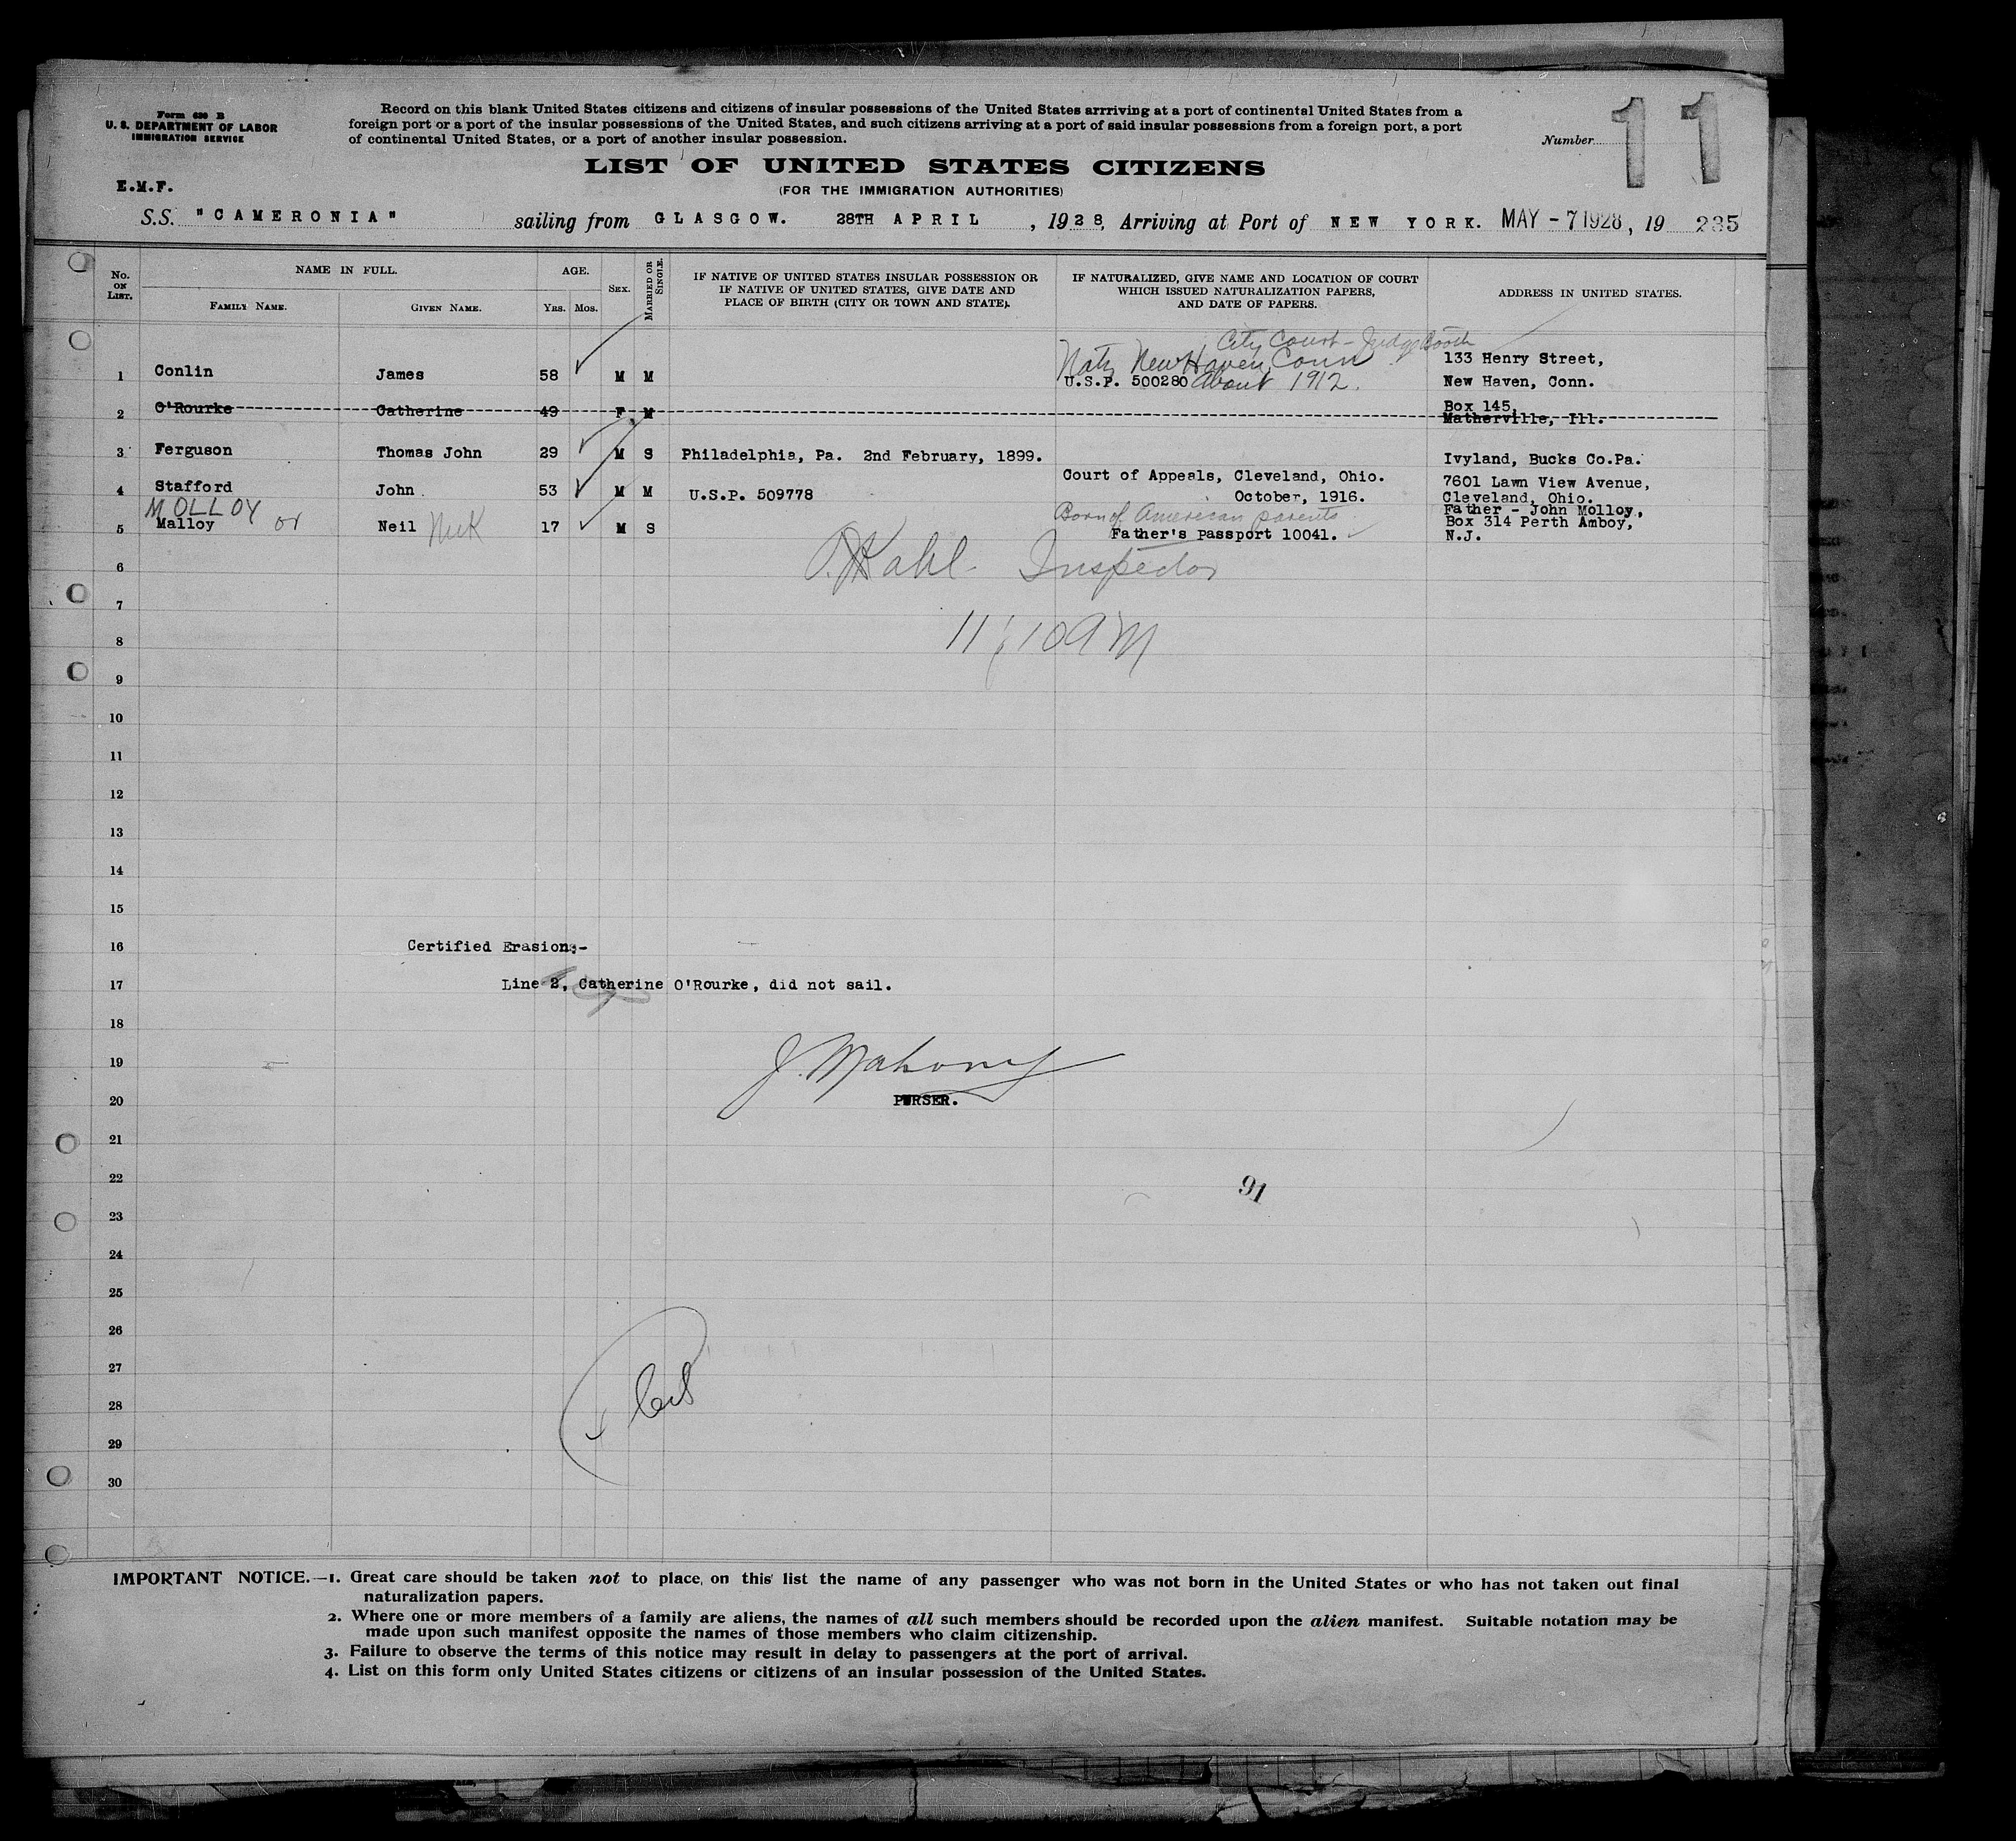 Form 630 B
U. S. DEPARTMENT OF LABOR
IMMIGRATION SERVICE
Record on this blank United States citizens and citizens of insular possessions of the United States arrriving at a port of continental United States from a
foreign port or a port of the insular possessions of the United States, and such citizens arriving at a port of said insular possessions from a foreign port, a port
of continental United States, or a port of another insular possession.
Number 11
LIST OF UNITED STATES CITIZENS
(FOR THE IMMIGRATION AUTHORITIES)
E.M.F.
S.S. "CAMERONIA" sailing from GLASGOW. 28TH APRIL, 1928, Arriving at Port of NEW YORK. MAY - 7 1928, 19 235
No. ON LIST.
NAME IN FULL.
FAMILY NAME.
GIVEN NAME.
AGE.
YRS. MOS.
SEX.
MARRIED OR SINGLE.
IF NATIVE OF UNITED STATES INSULAR POSSESSION OR
IF NATIVE OF UNITED STATES, GIVE DATE AND
PLACE OF BIRTH (CITY OR TOWN AND STATE).
IF NATURALIZED, GIVE NAME AND LOCATION OF COURT
WHICH ISSUED NATURALIZATION PAPERS,
AND DATE OF PAPERS.
ADDRESS IN UNITED STATES.
City Court - Judge Booth
Natz New Haven, Conn
133 Henry Street,
1 Conlin James 58 M M U.S.P. 500280 About 1912. New Haven, Conn.
Box 145,
2 O'Rourke Catherine 49 F M Matherville, Ill.
3 Ferguson Thomas John 29 M S Philadelphia, Pa. 2nd February, 1899. Ivyland, Bucks Co.Pa.
Court of Appeals, Cleveland, Ohio. 7601 Lawn View Avenue,
4 Stafford John 53 M M U.S.P. 509778 October, 1916. Cleveland, Ohio.
MOLLOY or Born of American parents Father - John Molloy,
5 Malloy Neil 17 M S Father's Passport 10041. Box 314 Perth Amboy,
N.J.
6
Kahl Inspector
7
8
11:10 AM
9
10
11
12
13
14
15
16 Certified Erasion:-
17 Line 2, Catherine O'Rourke, did not sail.
18
19 J. Mahony
20 PURSER.
21
22
91
23
24
25
26
27
28
29
30
IMPORTANT NOTICE.—1. Great care should be taken not to place on this list the name of any passenger who was not born in the United States or who has not taken out final
naturalization papers.
2. Where one or more members of a family are aliens, the names of all such members should be recorded upon the alien manifest. Suitable notation may be
made upon such manifest opposite the names of those members who claim citizenship.
3. Failure to observe the terms of this notice may result in delay to passengers at the port of arrival.
4. List on this form only United States citizens or citizens of an insular possession of the United States.